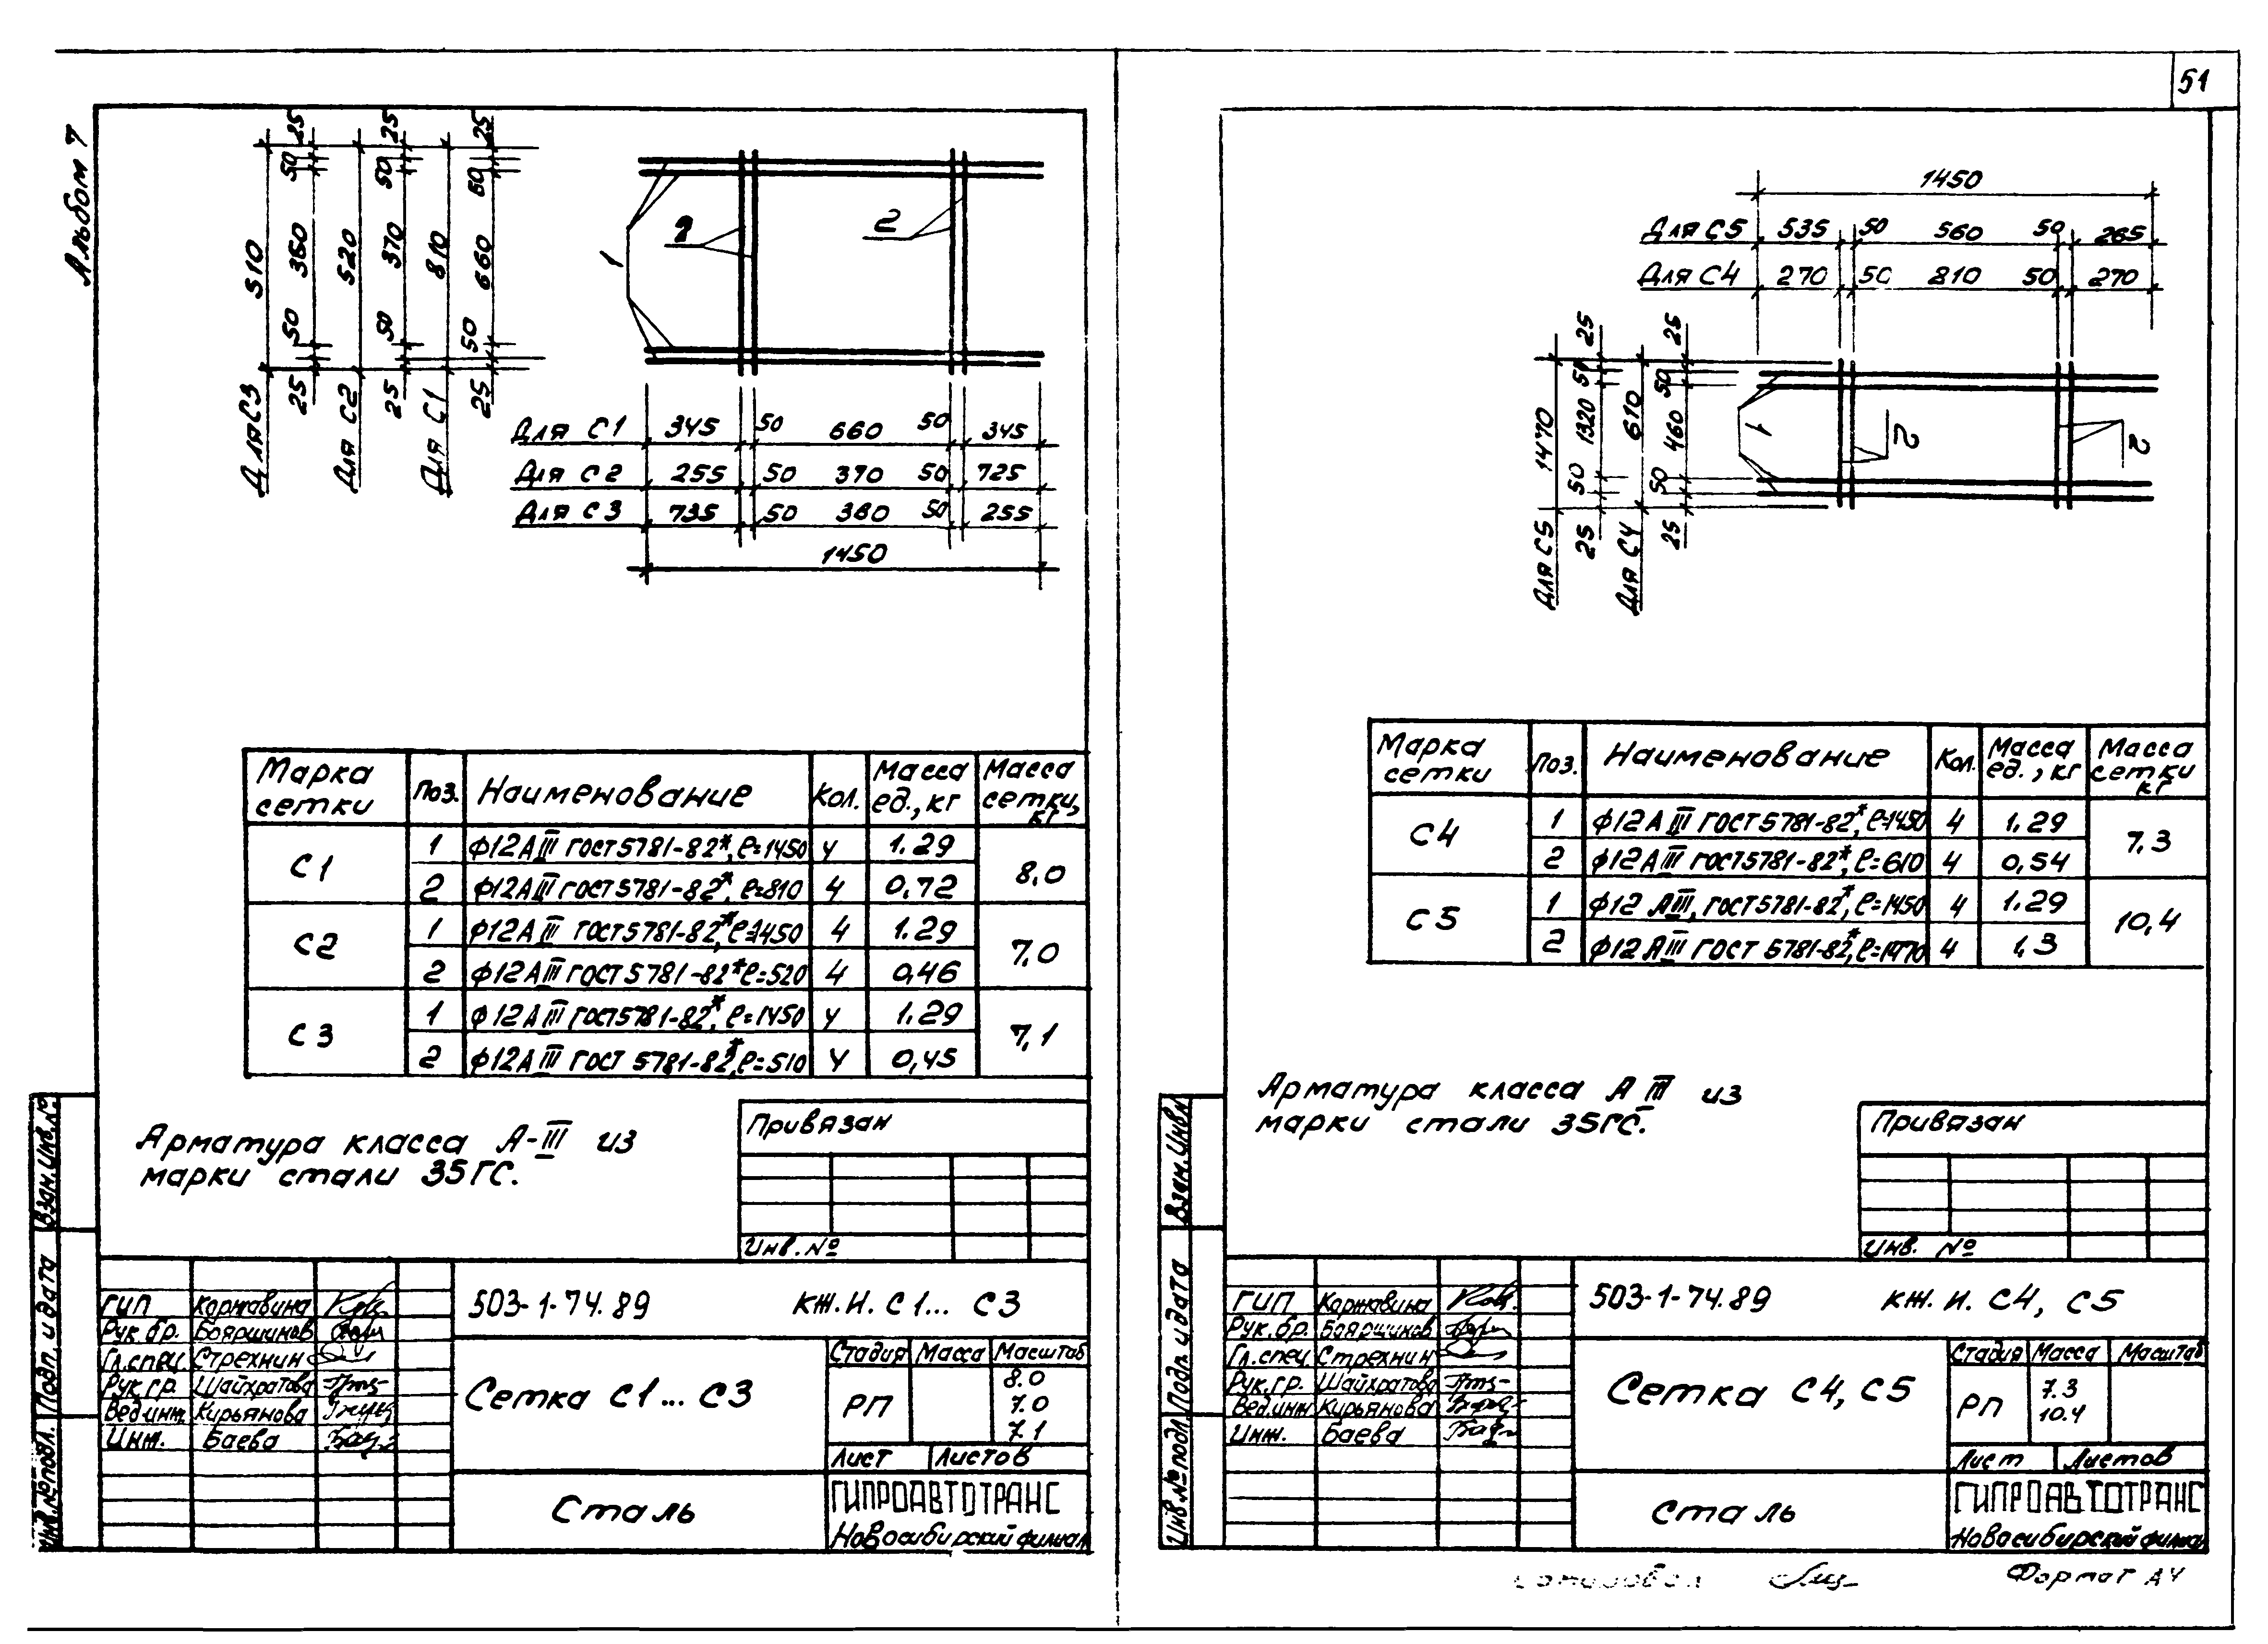 51
Альбом 7
Для С3 510 25 50 360 50 25
Для С2 520 25 50 370 50 25
Для С1 810 25 50 660 50 25
1 2 2
Для С1 345 50 660 50 345
Для С2 255 50 370 50 725
Для С3 735 50 360 50 255
1450
Марка сетки Поз. Наименование Кол. Масса ед., кг Масса сетки, кг
С1 1 ф12АIII ГОСТ5781-82*, ℓ=1450 4 1.29 8,0
2 ф12АIII ГОСТ5781-82*, ℓ=810 4 0,72
С2 1 ф12АIII ГОСТ5781-82*, ℓ=1450 4 1.29 7,0
2 ф12АIII ГОСТ5781-82* ℓ=520 4 0,46
С3 1 ф12АIII ГОСТ5781-82*, ℓ=1450 4 1.29 7,1
2 ф12АIII ГОСТ 5781-82*, ℓ=510 4 0,45
Арматура класса А-III из
марки стали 35ГС.
Привязан
Инв. №
Взам. Инв. №
Подп. и дата
Инв. № подл.
ГИП Коржавина
Рук. бр. Бояршинов
Гл. спец. Стрехнин
Рук. гр. Шайхратова
Вед. инж. Кирьянова
Инж. Баева
503-1-74.89 КЖ. И. С1... С3
Сетка С1... С3
Стадия Масса Масштаб
РП
8.0
7.0
7.1
Лист Листов
Сталь
ГИПРОАВТОТРАНС
Новосибирский филиал
1450
Для С5 535 50 560 50 265
Для С4 270 50 810 50 270
Для С5 1470 25 50 1320 50 25
Для С4 610 25 50 460 50 25
1 2 2
Марка сетки Поз. Наименование Кол. Масса ед., кг Масса сетки кг
С4 1 ф12АIII ГОСТ5781-82*, ℓ=1450 4 1.29 7,3
2 ф12АIII ГОСТ5781-82*, ℓ=610 4 0,54
С5 1 ф12 АIII, ГОСТ5781-82*, ℓ=1450 4 1.29 10,4
2 ф12АIII ГОСТ 5781-82*, ℓ=1470 4 1,3
Арматура класса А III из
марки стали 35ГС.
Привязан
Инв. №
Взам. Инв №
Подп. и дата
Инв. № подл.
ГИП Коржавина
Рук. бр. Бояршинов
Гл. спец. Стрехнин
Рук. гр. Шайхратова
Вед. инж Кирьянова
Инж. Баева
503-1-74.89 КЖ. И. С4, С5
Сетка С4, С5
Стадия Масса Масштаб
РП
7.3
10.4
Лист Листов
Сталь
ГИПРОАВТОТРАНС
Новосибирский филиал
Формат А4